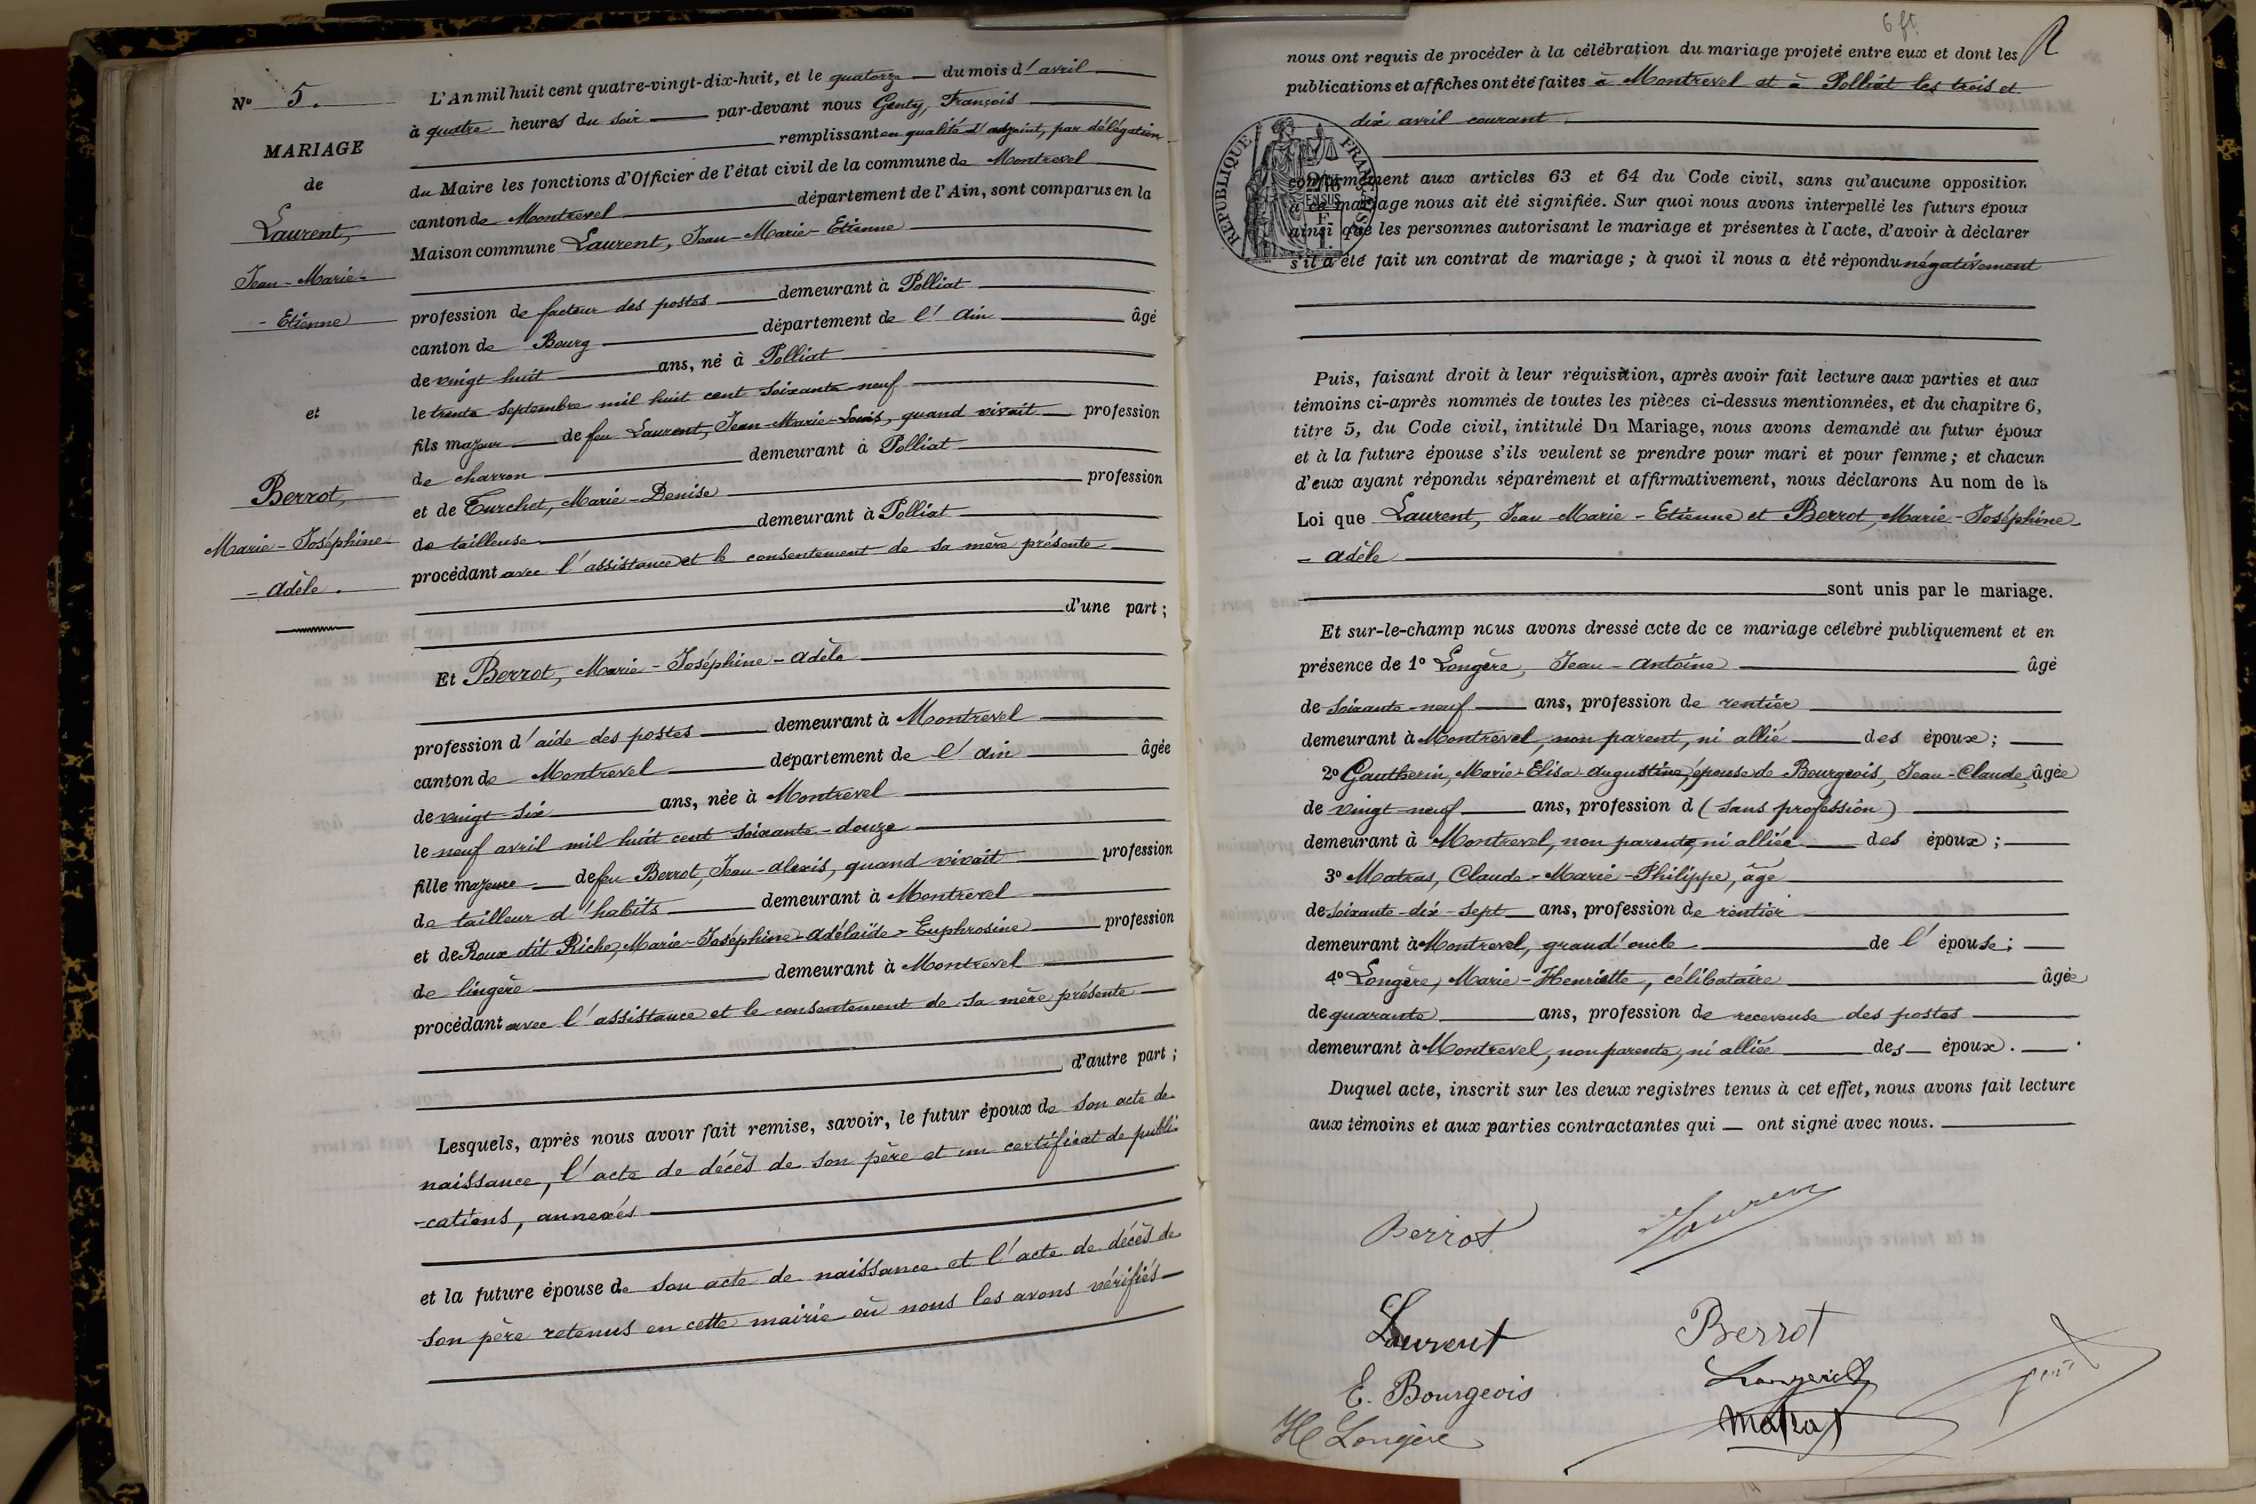 N° 5.
MARIAGE
de
Laurent,
Jean-Marie-
-Etienne
et
Berrot,
Marie-Joséphine
-Adèle.
L'An mil huit cent quatre-vingt-dix-huit, et le quatorze du mois d'avril
à quatre heures du soir par-devant nous Genty, François
remplissant en qualité d'adjoint, par délégation
du Maire les fonctions d'Officier de l'état civil de la commune de Montrevel
canton de Montrevel département de l'Ain, sont comparus en la
Maison commune Laurent, Jean-Marie-Etienne
profession de facteur des postes demeurant à Polliat
canton de Bourg département de l'Ain âgé
de vingt huit ans, né à Polliat
le trente septembre mil huit cent soixante neuf
fils majeur de feu Laurent, Jean-Marie-Louis, quand vivait profession
de charron demeurant à Polliat
et de Turchet, Marie-Denise profession
de tailleuse demeurant à Polliat
procédant avec l'assistance et le consentement de sa mère présente
d'une part;
Et Berrot, Marie-Joséphine-Adèle
profession d'aide des postes demeurant à Montrevel
canton de Montrevel département de l'Ain âgée
de vingt-six ans, née à Montrevel
le neuf avril mil huit cent soixante-douze
fille majeure de feu Berrot, Jean-Alexis, quand vivait profession
de tailleur d'habits demeurant à Montrevel
et de Roux dit Riche, Marie-Joséphine-Adélaïde-Euphrosine profession
de lingère demeurant à Montrevel
procédant avec l'assistance et le consentement de sa mère présente
d'autre part;
Lesquels, après nous avoir fait remise, savoir, le futur époux de son acte de
naissance, l'acte de décès de son père et un certificat de publi-
-cations, annexés
et la future épouse de son acte de naissance et l'acte de décès de
son père retenus en cette mairie où nous les avons vérifiés
6 ft
nous ont requis de procéder à la célébration du mariage projeté entre eux et dont les
publications et affiches ont été faites à Montrevel et à Polliat les trois et
dix avril courant.
RÉPUBLIQUE FRANÇAISE
conformément aux articles 63 et 64 du Code civil, sans qu'aucune opposition
à ce mariage nous ait été signifiée. Sur quoi nous avons interpellé les futurs époux
ainsi que les personnes autorisant le mariage et présentes à l'acte, d'avoir à déclarer
s'il a été fait un contrat de mariage; à quoi il nous a été répondu négativement
Puis, faisant droit à leur réquisition, après avoir fait lecture aux parties et aux
témoins ci-après nommés de toutes les pièces ci-dessus mentionnées, et du chapitre 6,
titre 5, du Code civil, intitulé Du Mariage, nous avons demandé au futur époux
et à la future épouse s'ils veulent se prendre pour mari et pour femme; et chacun
d'eux ayant répondu séparément et affirmativement, nous déclarons Au nom de la
Loi que Laurent, Jean-Marie-Etienne et Berrot, Marie-Joséphine-
-Adèle
sont unis par le mariage.
Et sur-le-champ nous avons dressé acte de ce mariage célébré publiquement et en
présence de 1° Longère, Jean-Antoine âgé
de soixante-neuf ans, profession de rentier
demeurant à Montrevel, non parent, ni allié des époux;
2° Gautherin, Marie-Elisa-Augustine, épouse de Bourgeois, Jean-Claude, âgée
de vingt neuf ans, profession d (sans profession)
demeurant à Montrevel, non parente, ni alliée des époux;
3° Matras, Claude-Marie-Philippe, âgé
de soixante-dix-sept ans, profession de rentier
demeurant à Montrevel, grand'oncle de l'épouse;
4° Longère, Marie-Henriette, célibataire âgée
de quarante ans, profession de receveuse des postes
demeurant à Montrevel, non parente, ni alliée des époux.
Duquel acte, inscrit sur les deux registres tenus à cet effet, nous avons fait lecture
aux témoins et aux parties contractantes qui ont signé avec nous.
Berrot Laurent
Laurent Berrot
E. Bourgeois
H Longère